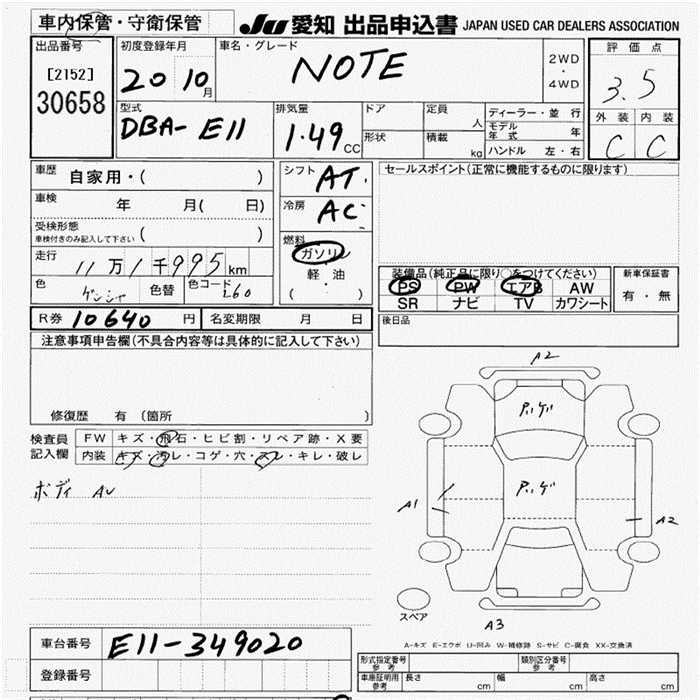 車内保管・守衛保管
JU 愛知 出品申込書 JAPAN USED CAR DEALERS ASSOCIATION
出品番号
[2152]
30658
初度登録年月
20 10月
車名・グレード
NOTE
2WD
・
4WD
評価点
3.5
外装 内装
C C
型式
DBA-E11
排気量
1.49 CC
ドア
形状
定員 人
積載 kg
ディーラー・並行
モデル年式 年
ハンドル 左・右
車歴
自家用・( )
車検
年 月( 日)
受検形態
車検付きのみ記入して下さい ( )
走行
11万1千995km
色
色替
色コード
L60
シフト
AT.
冷房
AC
燃料
ガソリン
軽・油
・( )
セールスポイント(正常に機能するものに限ります)
装備品(純正品に限り○をつけてください)
PS PW エアB AW
SR ナビ TV カワシート
新車保証書
有・無
R券 10640 円
名変期限 月 日
後日品
注意事項申告欄(不具合内容等は具体的に記入して下さい)
修復歴 有(箇所 )
検査員
記入欄
FW キズ・飛石・ヒビ割・リペア跡・X要
内装 キズ・汚レ・コゲ・穴・スレ・キレ・破レ
ボディ
A2
A1
A2
A3
スペア
A-キズ E-エクボ U-凹み W-補修跡 S-サビ C-腐食 XX-交換済
車台番号
E11-349020
登録番号
形式指定番号
参考
類別区分番号
参考
車庫証明用
参考
長さ cm
幅 cm
高さ cm